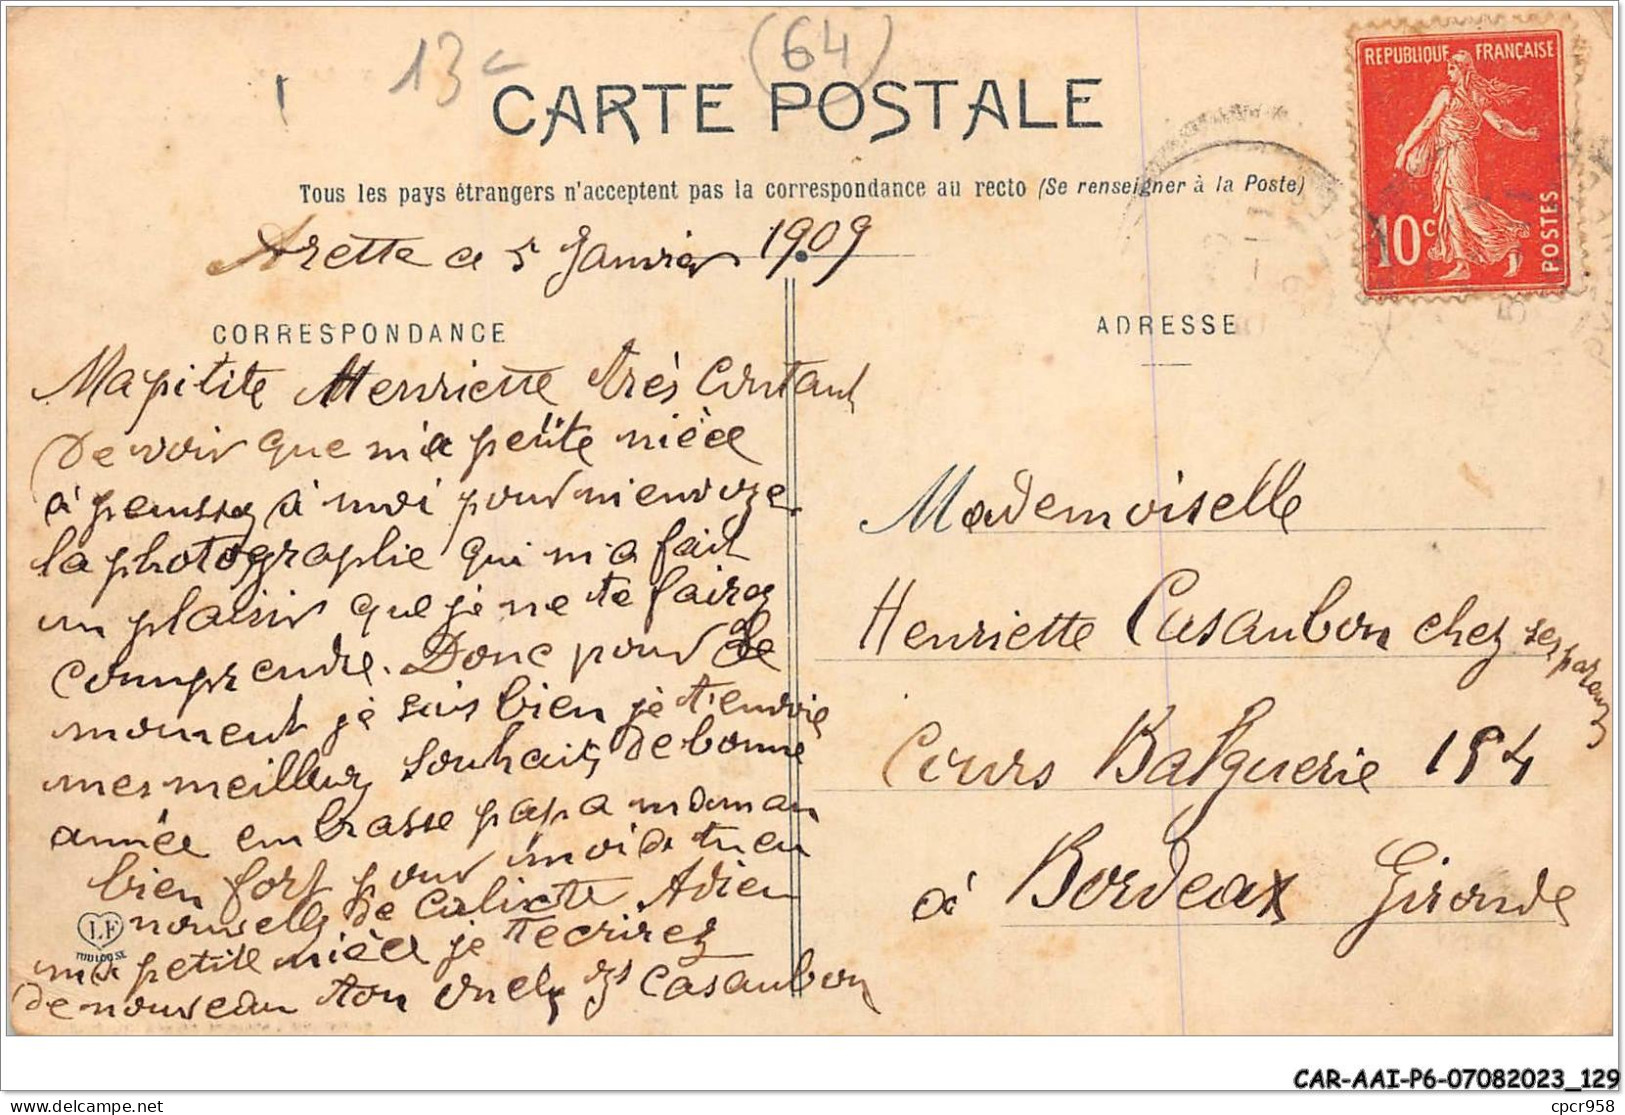 13c
(64)
CARTE POSTALE
REPUBLIQUE FRANÇAISE
10c
POSTES
Tous les pays étrangers n'acceptent pas la correspondance au recto (Se renseigner à la Poste)
Arette ce 5 Janvier 1909
CORRESPONDANCE
Ma pitite Henriette très Contant
De voir que ma petite nièce
à penssez à moi pour m'envoyer
la photographie qui m'a fait
un plaisir que je ne te fairez
comprendre. Donc pour le
moment je suis bien je t'envoie
mes meilleur souhait de bonne
année embrasse papa maman
bien fort pour moi
nouvelle de Adieu
ma petite nièce je t'ecrirez
de nouveau ton oncle Casaubon
LF
TOULOUSE
ADRESSE
Mademoiselle
Henriette Casaubon chez ses parents
Cours Balguerie 154
à Bordeax Gironde
CAR-AAI-P6-07082023_129
cpcr958